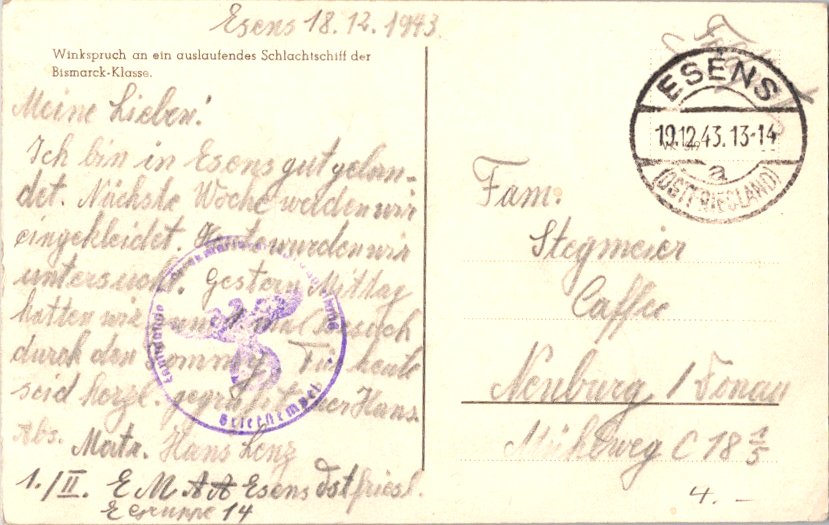 Esens 18.12.1943
Winkspruch an ein auslaufendes Schlachtschiff der
Bismarck-Klasse.
Meine Lieben!
Ich bin in Esens gut gelan-
det. Nächste Woche werden wir
eingekleidet. Heute wurden wir
untersucht. Gestern Mittag
hatten wir mal Besuch
durch den Tommy. Für heute
seid herzl. gegrüßt euer Hans.
Abs. Matr. Hans Lenz
1./II. E M A A Esens Ostfriesl.
E Gruppe 14
Briefstempel
ESENS
19.12.43.13-14
a
(OSTFRIESLAND)
Fam:
Stegmeier
Caffee
Neuburg / Donau
Mühlweg C 18 1/5
4. –